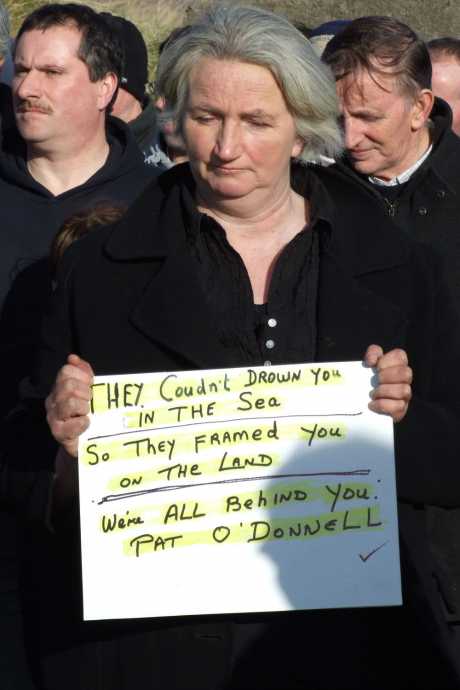 THEY Coudn't DROWN YOU
IN THE Sea
So THEY FRAMED YOU
ON THE LAND
We're ALL BeHIND YOU:
PAT O'DONNELL